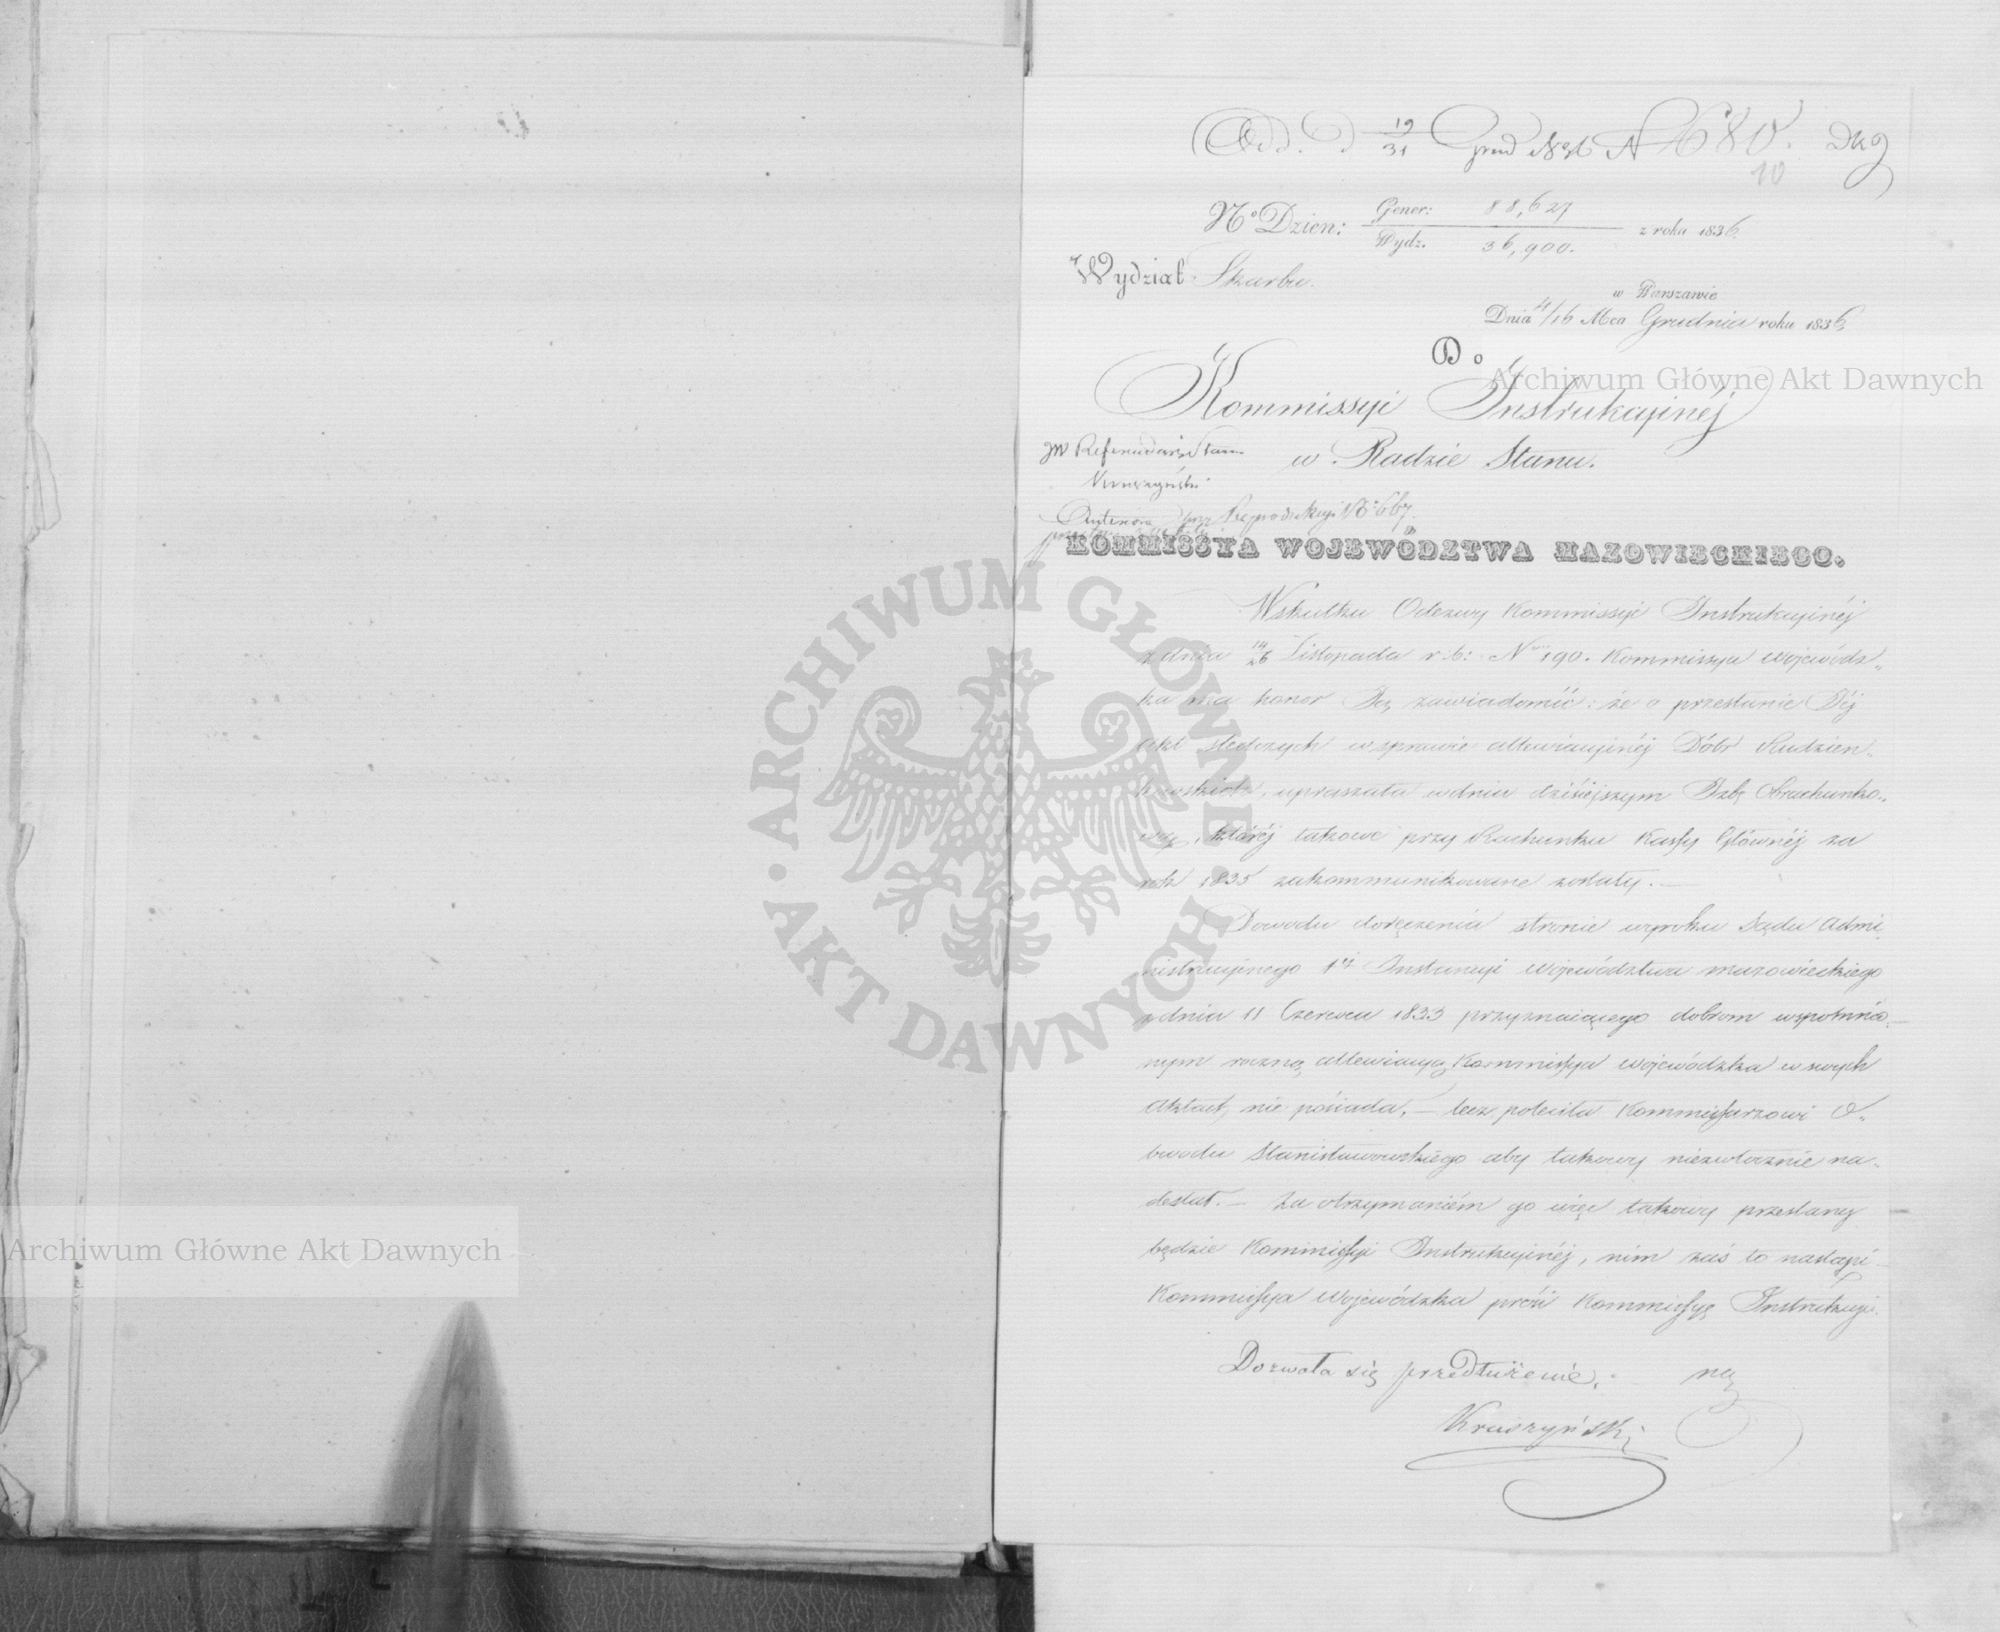 Od. D 19/31 Grud 1836 N 680. Dkg
10
No Dzien: Gener: 88,627
Wydz. 36,900. z roku 1836
Wydział Skarbu.
w Warszawie
Dnia 4/16 Mca Grudnia roku 1836
Do
Kommissyi Instrukcyinej
w Radzie Stanu.
JW Referendarz Stanu
Kruszyński
przy Reprodukcyi No 667.
KOMMISSYA WOJEWÓDZTWA MAZOWIECKIEGO.
Wskutku Odezwy Kommissyi Instrukcyinéj
z dnia 14/26 Listopada r. b: Nro 190. Kommissya wojewódz„
ka ma honor Ją zawiadomić: że o przesłanie Jéj
akt śledczych w sprawie allewiacyinéj Dóbr Rudzien„
kowskich, upraszała w dniu dzisiejszym Izbę Obrachunko„
wą, któréj takowe przy Rachunku Kassy Głównéj za
rok 1835 zakommunikowane zostały. —
Dowodu doręczenia stronie wyroku Sądu Admi„
nistracyinego 1éj Instancyi województwa mazowieckiego
z dnia 11 Czerwca 1833 przyznaiącego dobrom wspomnio„
nym roczną allewiacyą, Kommissya wojewódzka w swych
aktach nie posiada, — lecz poleciła Kommissarzowi O„
bwodu Stanisławowskiego aby takowy niezwłocznie na„
desłał. — Za otrzymaniém go więc takowy przesłany
będzie Kommissyi Instrukcyinéj, nim zaś to nastąpi
Kommissya wojewódzka prosi Kommissyę Instrukcyi„
Dozwala się przedłużenie. ną
Kruszyński
ARCHIWUM GŁÓWNE AKT DAWNYCH
Archiwum Główne Akt Dawnych
Archiwum Główne Akt Dawnych